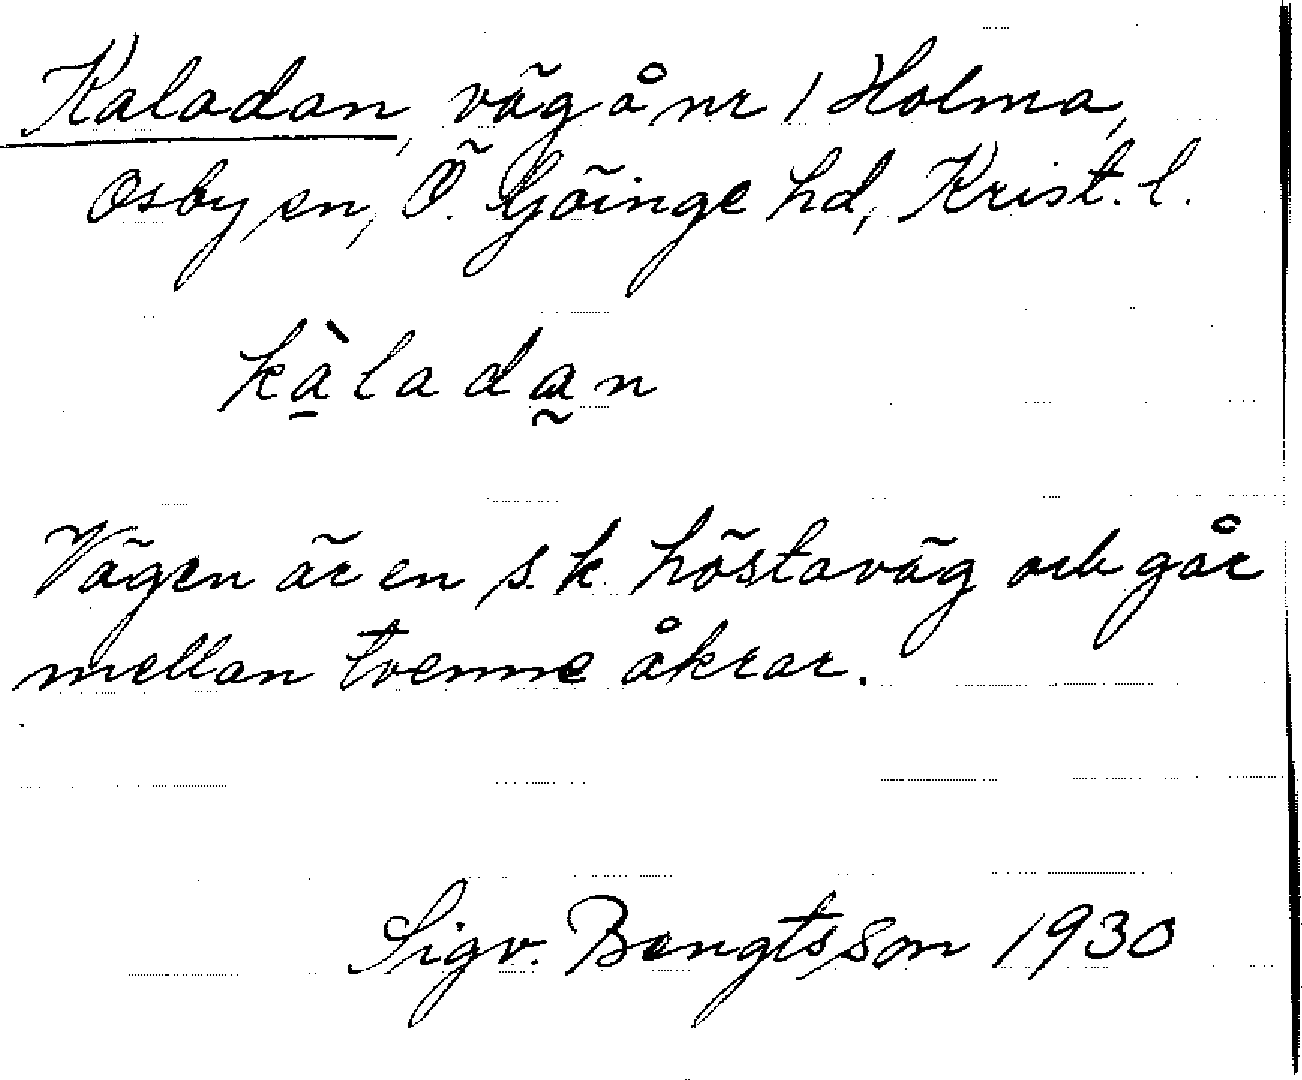 Kaladan, väg å nr 1 Holma,
Osby sn, Ö. Göinge hd, Krist. l.
kà̱lada̰n
Vägen är en s.k. höstaväg och går
mellan tvenne åkrar.
Sigv. Bengtsson 1930